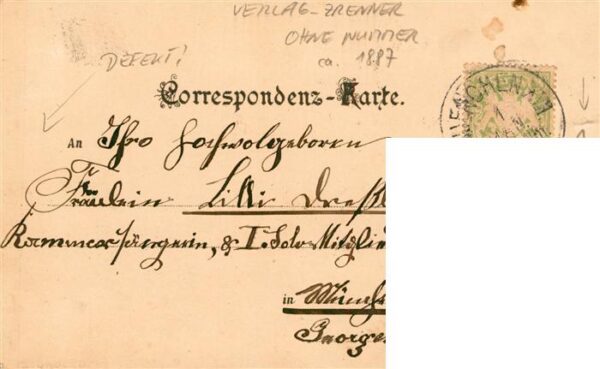 VERLAG-ZRENNER
OHNE NUMMER
ca. 1887
DEFEKT!
Correspondenz-Karte.
MÜNCHEN
An Ihro Hochwolgeboren
Fräulein Lilli Dreßl
Kammersängerin, & I. Solo-Mitglie
in Münch
George